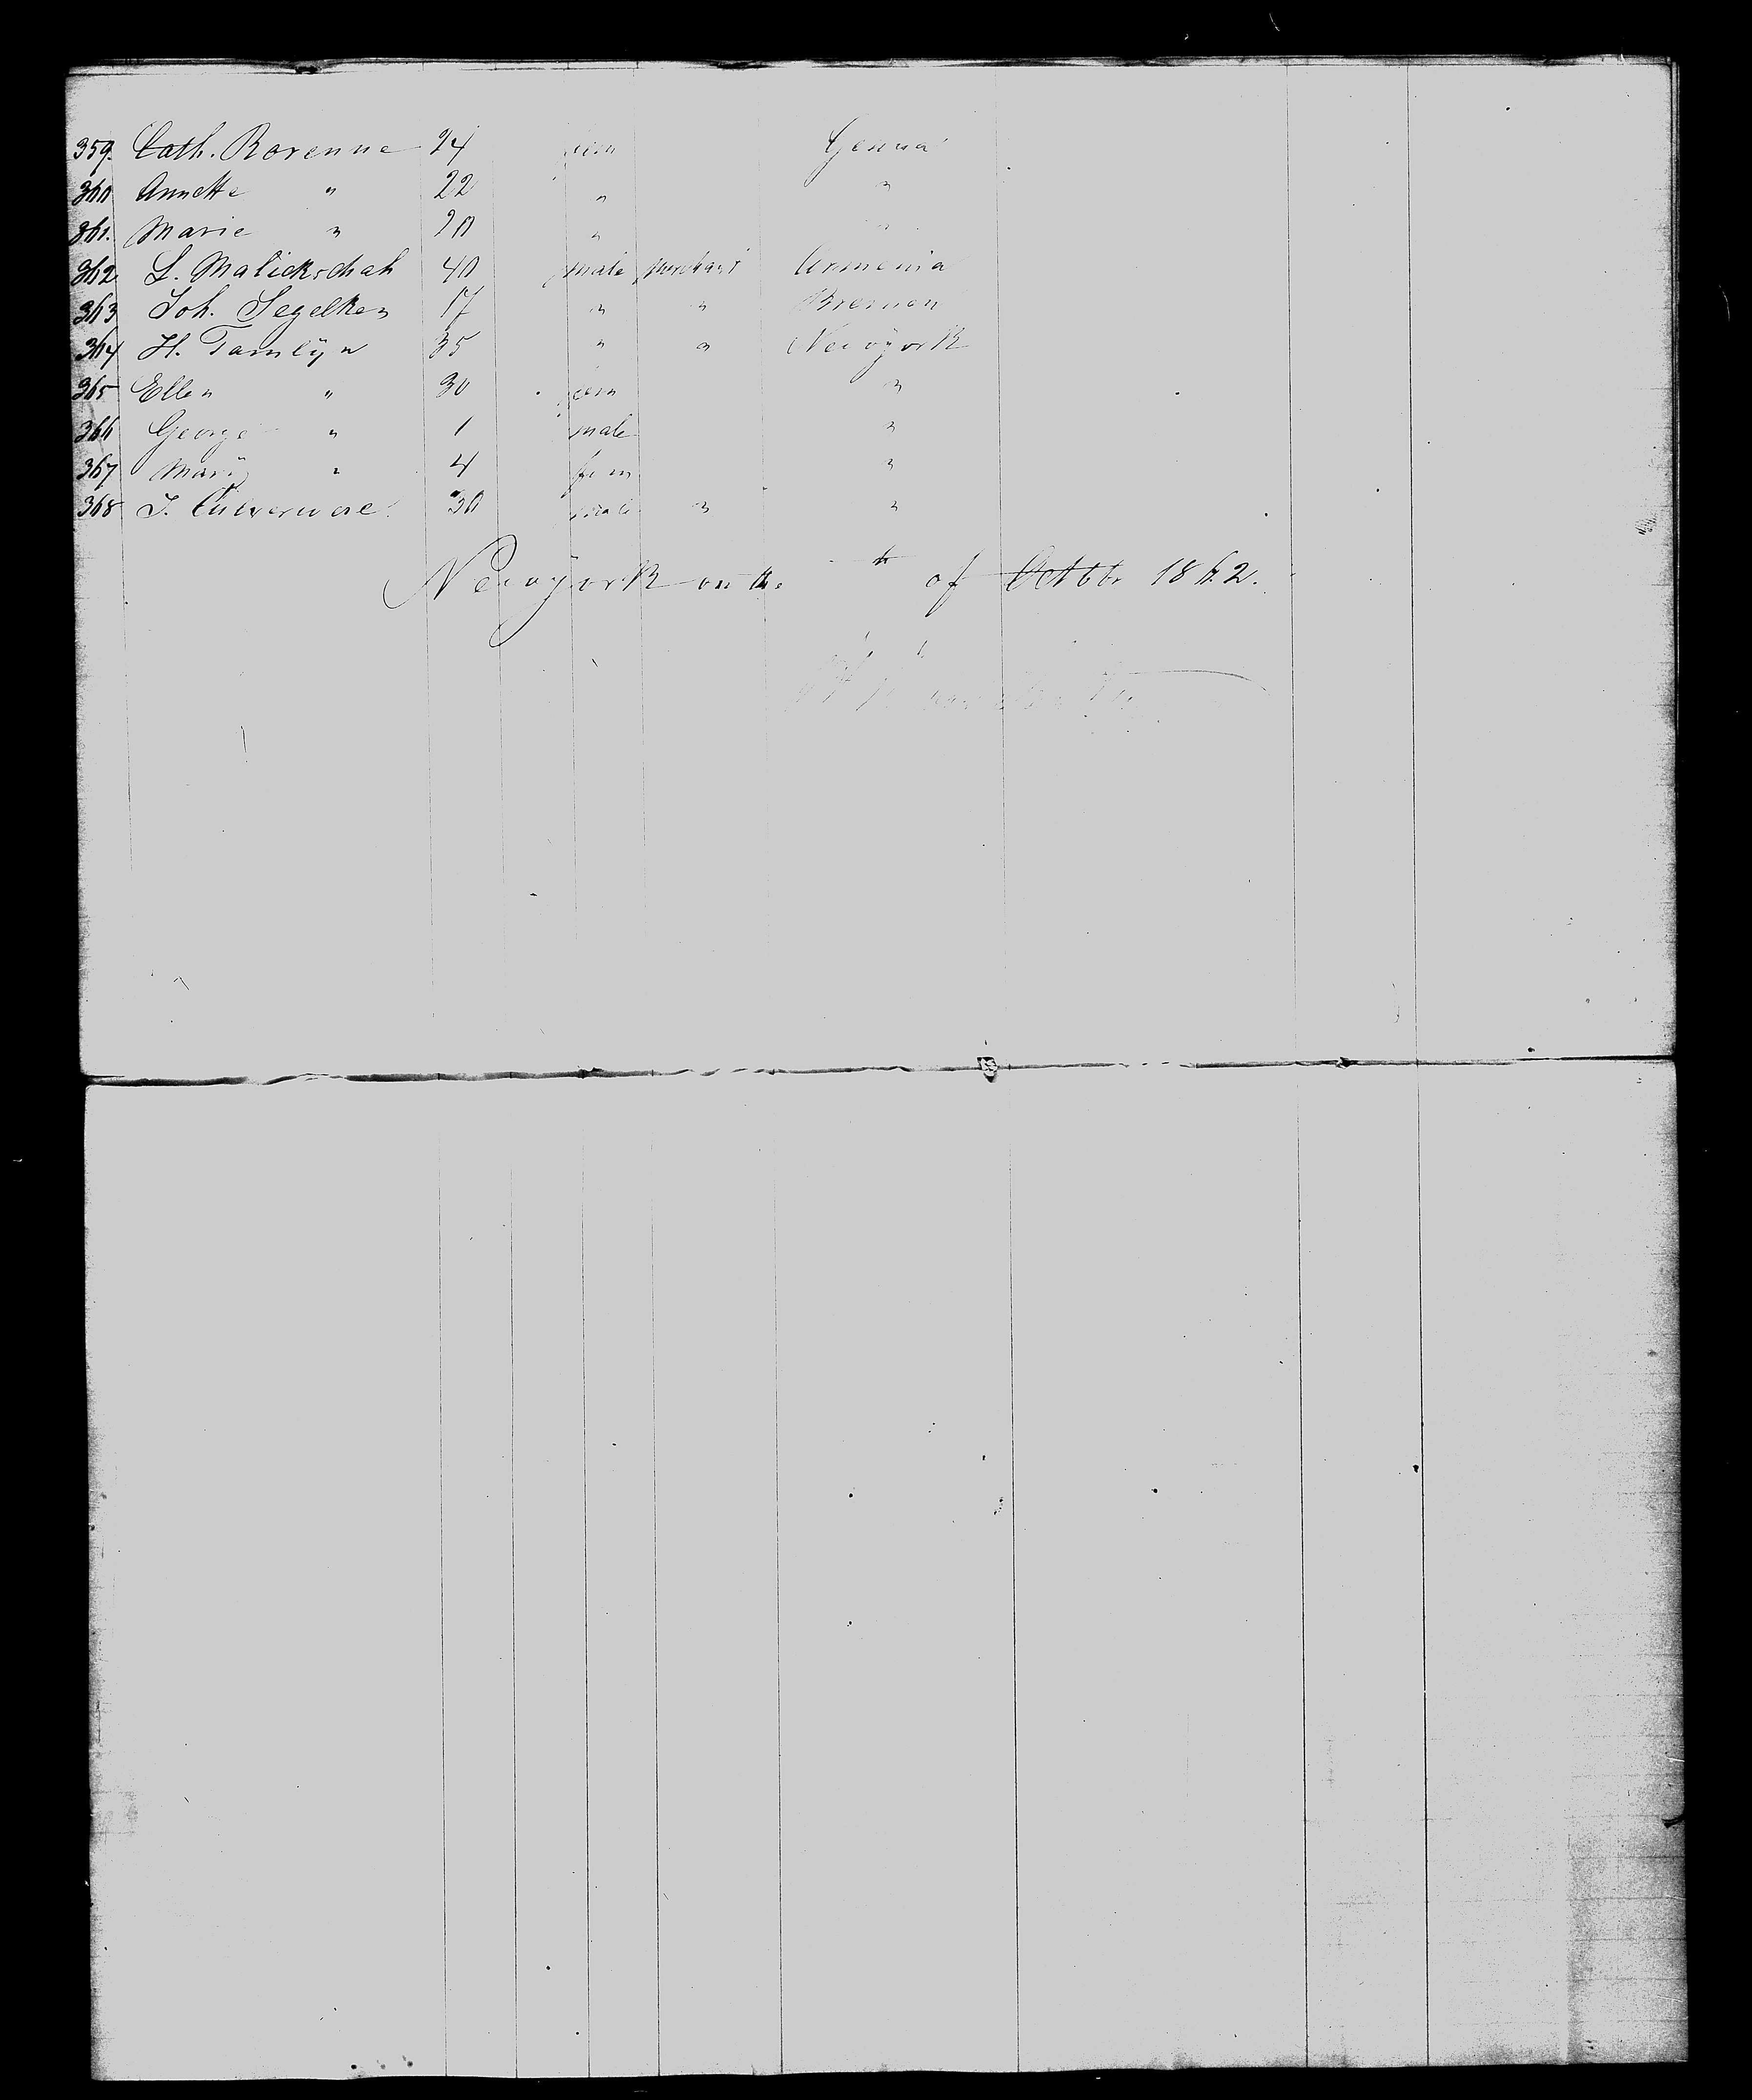 359. Cath. Rovenna 24 fem Genua
360 Annette " 22 " "
361. Marie " 20 " "
362 L. Malickschah 40 male Merchant Armenia
363 Joh. Segelken 17 " " Bremen
364 H. Tamlÿn 35 " " Newÿork
365 Ellen " 30 fem "
366 George " 1 male "
367 Marÿ " 4 fem "
368 J. 30 male " "
Newÿork on the th of Octbr 1862.